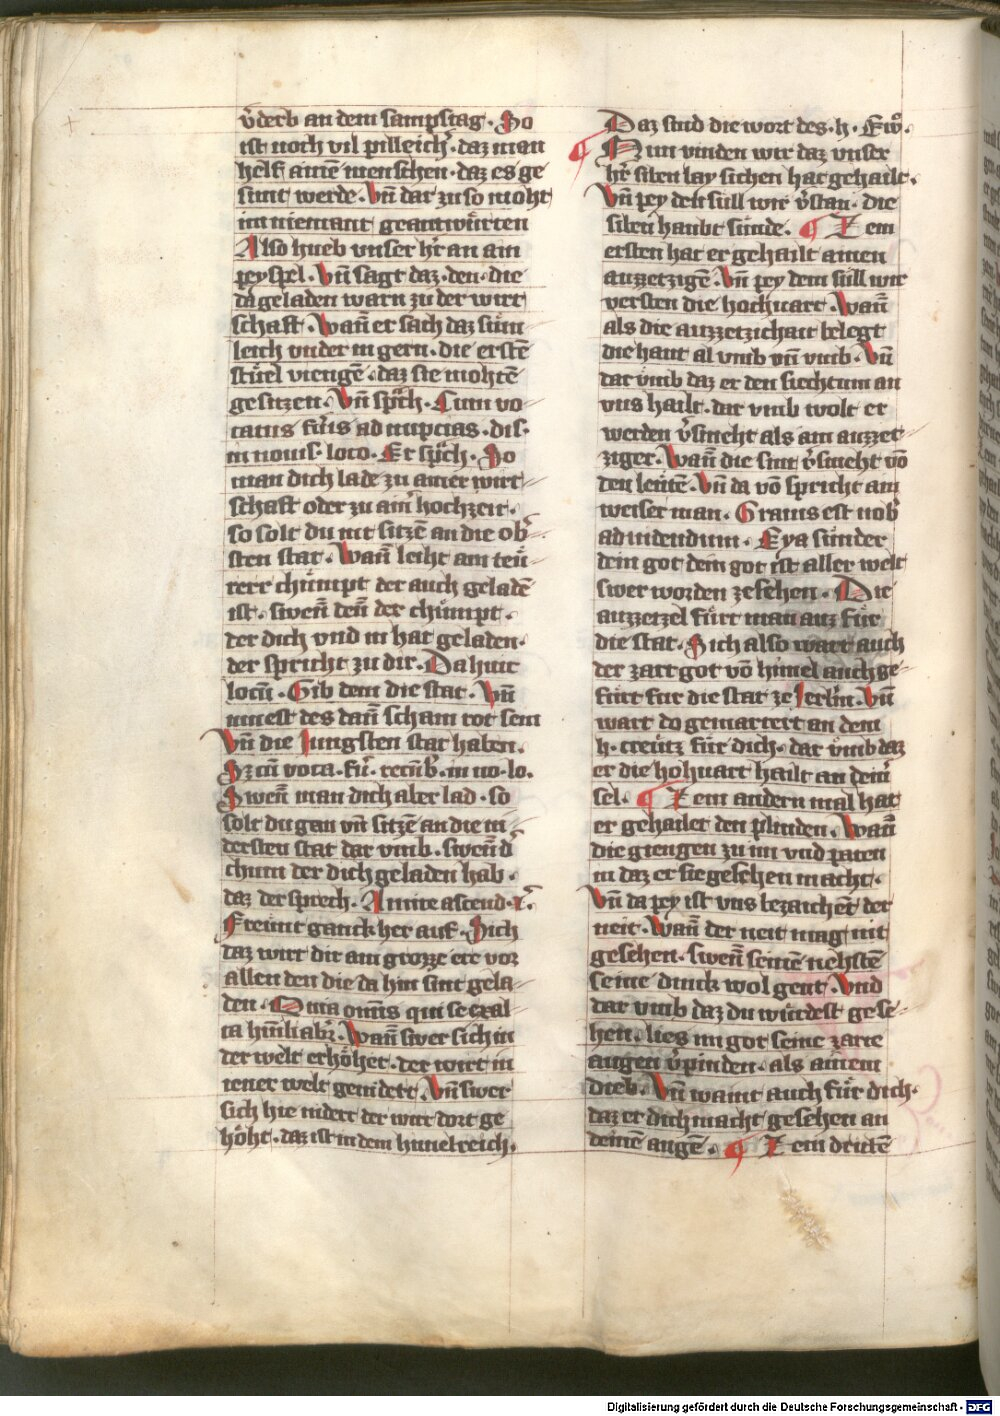 v̄derb an dem sampstag. So
ist noch vil pilleichˀ. daz man
helf ainē menschen. daz es ge
sunt werde. Vn̄ dar zu so moht
im niemant geantwürten
Also hueb vnser hr̄ an am
peyspel. Vn̄ sagt daz. den. die
da geladen warn zu der wirt
schaft. Wan̄ er sach daz süm
leich vnder in gern. die erstē
stüel viengē. daz sie mohtē
gesitzen. Vn̄ sprach. Cum vo
catus fuˀis ad nupcias. dis.
in nouisˀ loco. Er sprach. So
man dich lade zu ainer wirt
schaft oder zu ainˀ hochzeit.
so solt du nit sitzē an die obˀ
sten stat. Wan̄ leiht am teü
rerr chümpt der auch geladē
ist. swen̄ den̄ der chümpt.
der dich vnd in hat geladen.
der spricht zu dir. Da huic
locū. Gib dem die stat. Vn̄
muest des dan̄ scham rot sein
Vn̄ die Jungsten stat haben.
Sz cū voca. fuˀ. recūbˀ. in no. lo.
Swen̄ man dich aber lad. so
solt du gen vn̄ sitzē an die ni
dersten stat dar vmb. swen̄ dˀ
chum der dich geladen hab.
daz der sprech. Amice ascend. rˀ.
Freünt ganck her auf. Sich
daz wirt dir am grozze ere vor
allen den die da hin sint gela
den. Quia om̄is qui se exal
ta hūiliabrˀ. Wan̄ swer sich in
der welt erhöhet. der wirt in
iener welt genidert. Vn̄ swer
sich hie nidert der wirt dort ge
höht. daz ist in dem himelreich.
Daz sind die wort des. h. Ewˀ.
¶ Nun vinden wir daz vnser
hr̄ siben lay sichen hat gehailt.
Vn̄ pey den süll wir v̄stan. die
siben haubt sünde. ¶ Zem
ersten hat er gehailt ainen
auzzetzigē. Vn̄ pey dem süll wir
versten die hochuart. Wan̄
als die auzzetzichait belegt
die haut al vmb vn̄ vmb. Vn̄
dar vmb daz er den siechtum an
vns hailt. dar vmb wolt er
werden v̄smeht als am auzzet
ziger. Wan̄ die sint v̄smeht vō
den leütē. Vn̄ da vō spricht am
weiser man. Grauis est nobˀ
ad uidendum. Eya sünder
dein got dein got ist aller welt
swer worden ze sehen. Die
auzzetzel fürt man auz für
die stat. Sich also wart auch
der zart got vō himel auch ge
fürt für die stat ze Jerlˀm. Vn̄
wart do gemartert an dem
h. creütz für dich. dar vmb daz
er die hohuart hailt an deinˀ
sel. ¶ Zem andern mal hat
er gehailet den plinden. Wan̄
die giengen zu im vnd paten
in daz er sie gesehen macht.
Vn̄ da pey ist vns bezaichēt der
neit. Wan̄ der neit mag nit
gesehen. swen̄ seinē nehstē
seine dinck wol gent. Vnd
dar vmb daz du würdest gese
hen. lies im got seine zarte
augen v̄pinden. als ainem
dieb. Vn̄ waint auch für dich.
daz er dich macht gesehen an
deinē augē. ¶ Zem dritē
Digitalisierung gefördert durch die Deutsche Forschungsgemeinschaft - DFG